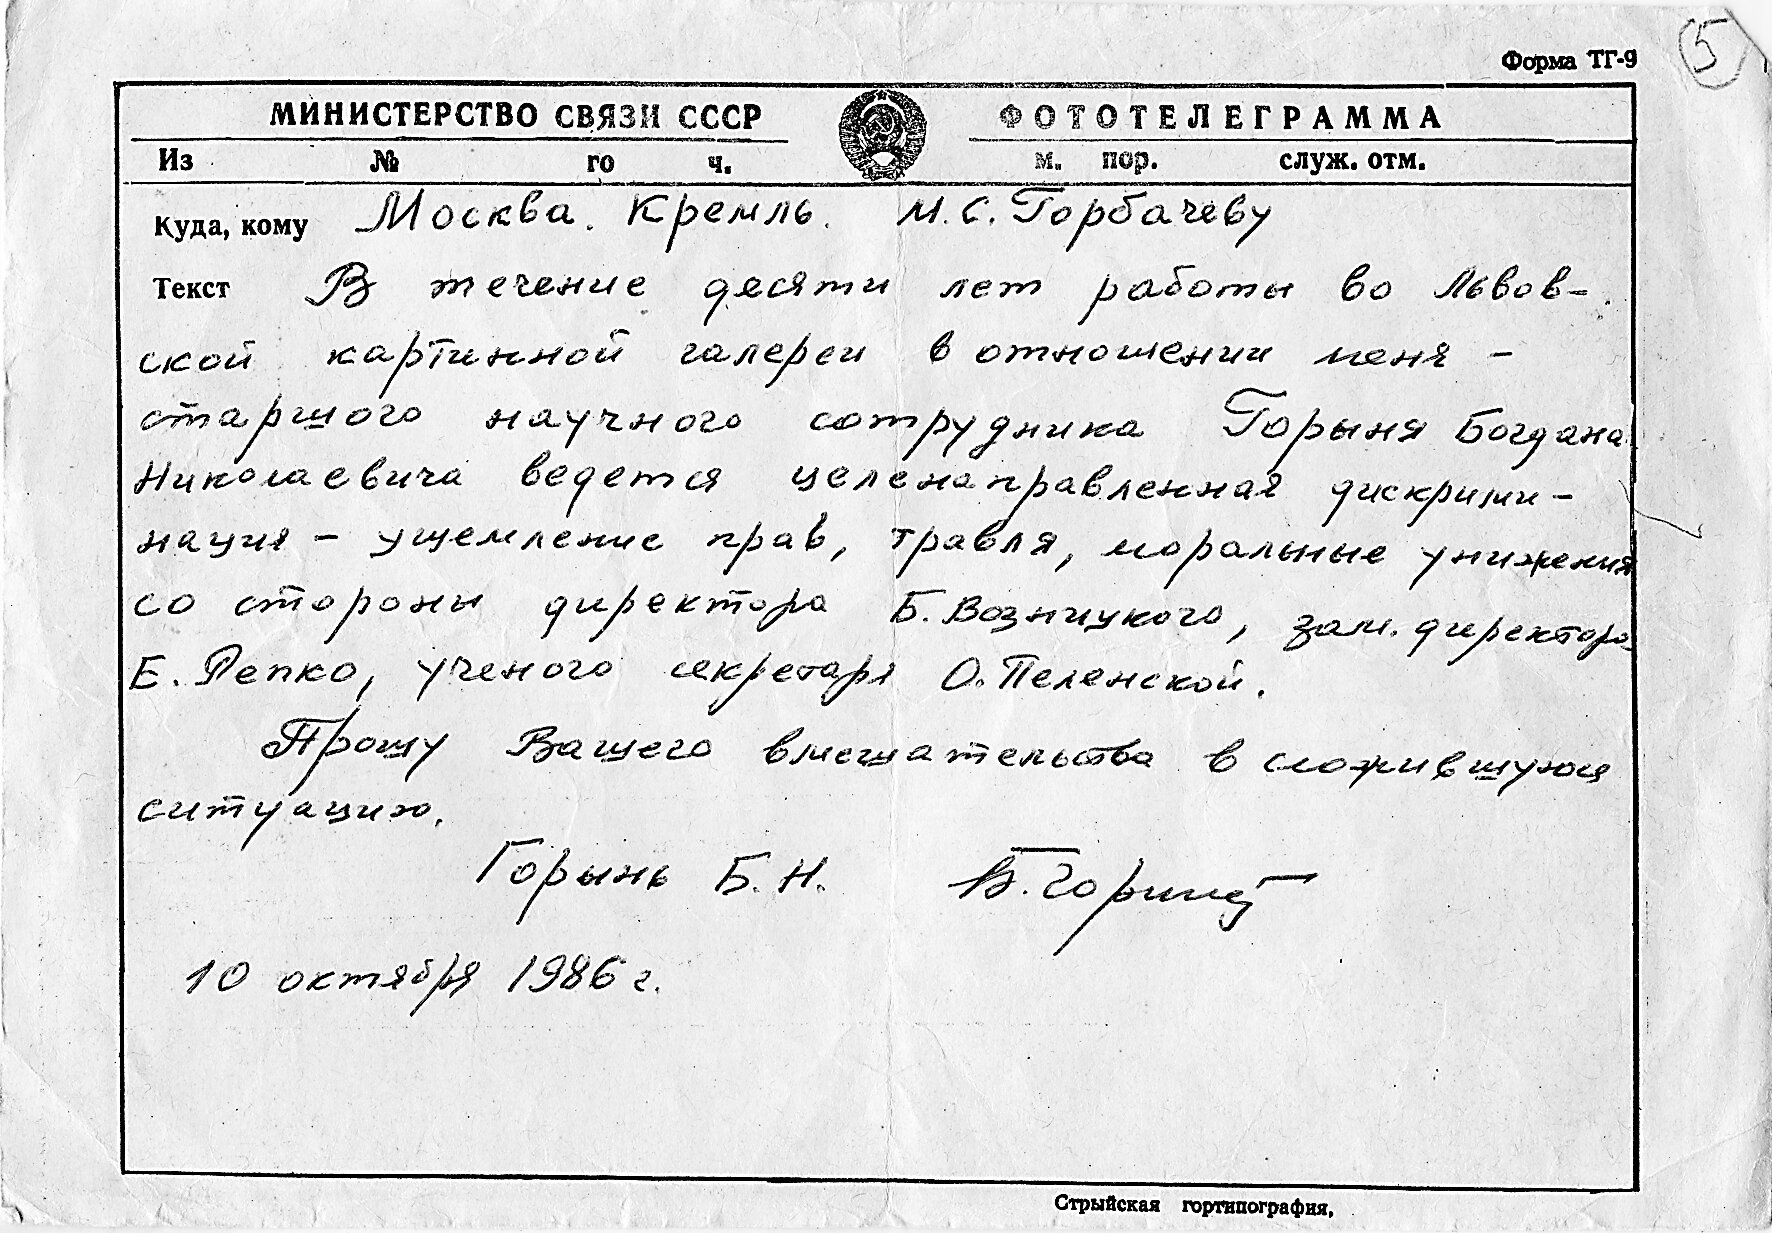 5
Форма ТГ-9
МИНИСТЕРСТВО СВЯЗИ СССР ФОТОТЕЛЕГРАММА
Из № го ч. м. пор. служ. отм.
Куда, кому Москва. Кремль. М.С. Горбачеву
Текст В течение десяти лет работы во Львов-
ской картинной галереи в отношении меня –
старшого научного сотрудника Горыня Богдана
Николаевича ведется целенаправленная дискрими-
нация – ущемление прав, травля, моральные унижения
со стороны директора Б. Возницкого, зам. директора
Е. Репко, ученого секретаря О. Пеленской.
Прошу Вашего вмешательства в сложившуюся
ситуацию.
Горынь Б.Н. Б. Горинь
10 октября 1986 г.
Стрыйская гортипография,